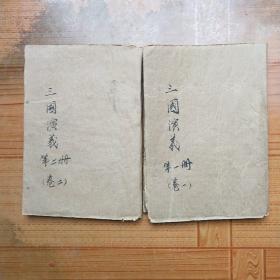 三國演義
第一册
（卷一）
三國演義
第二册
（卷二）